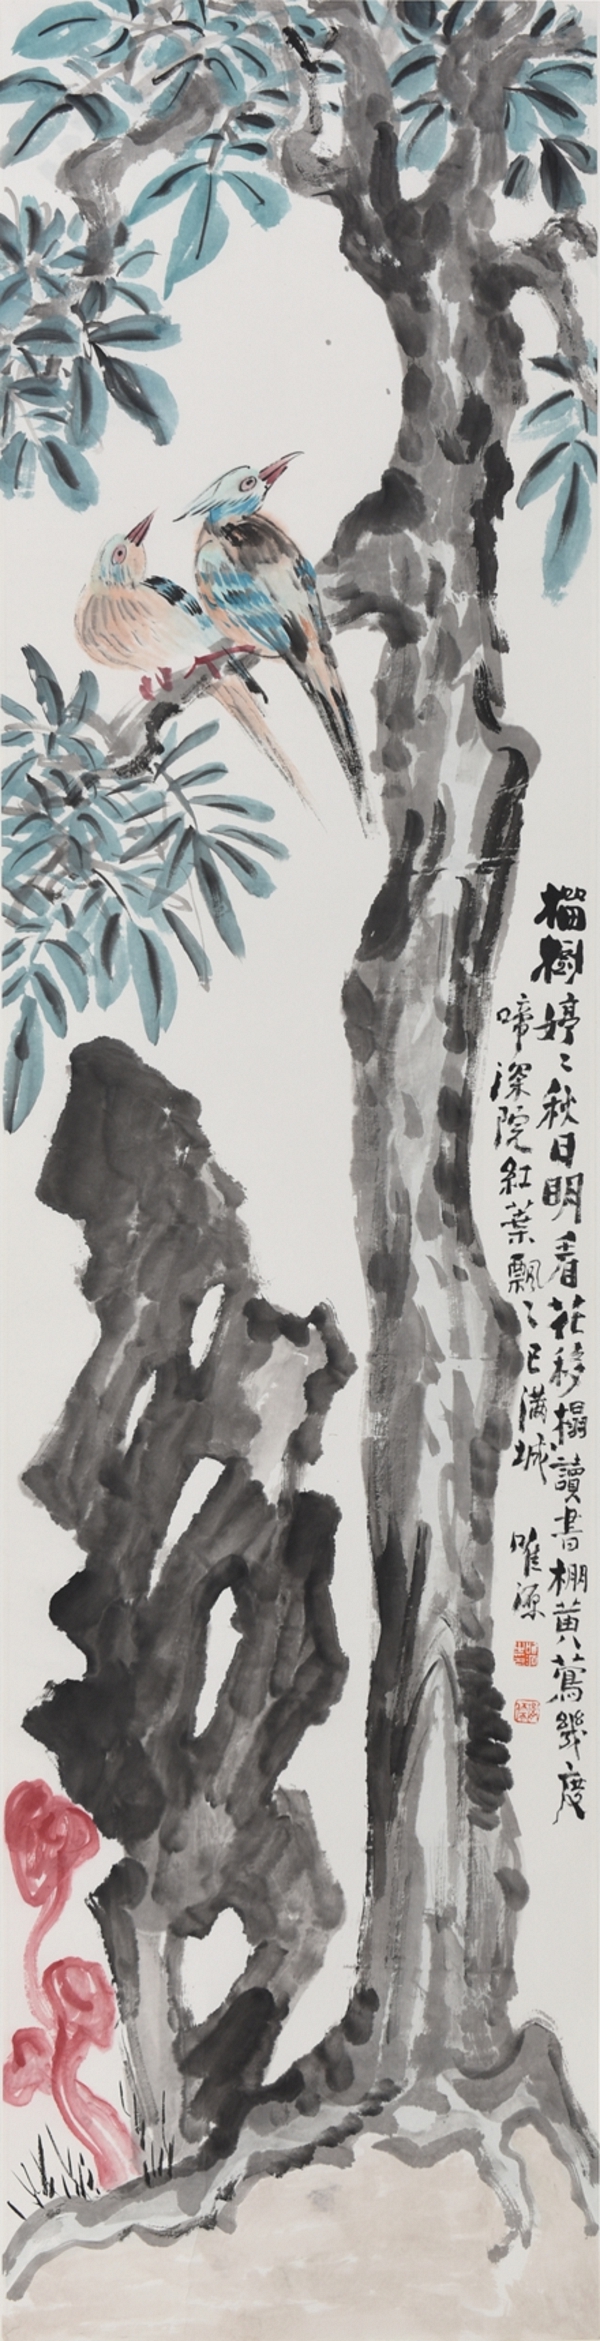 樹婷〻秋日明看花移榻讀書棚黄鶯幾度
啼深院紅葉飄〻已滿城
唯源